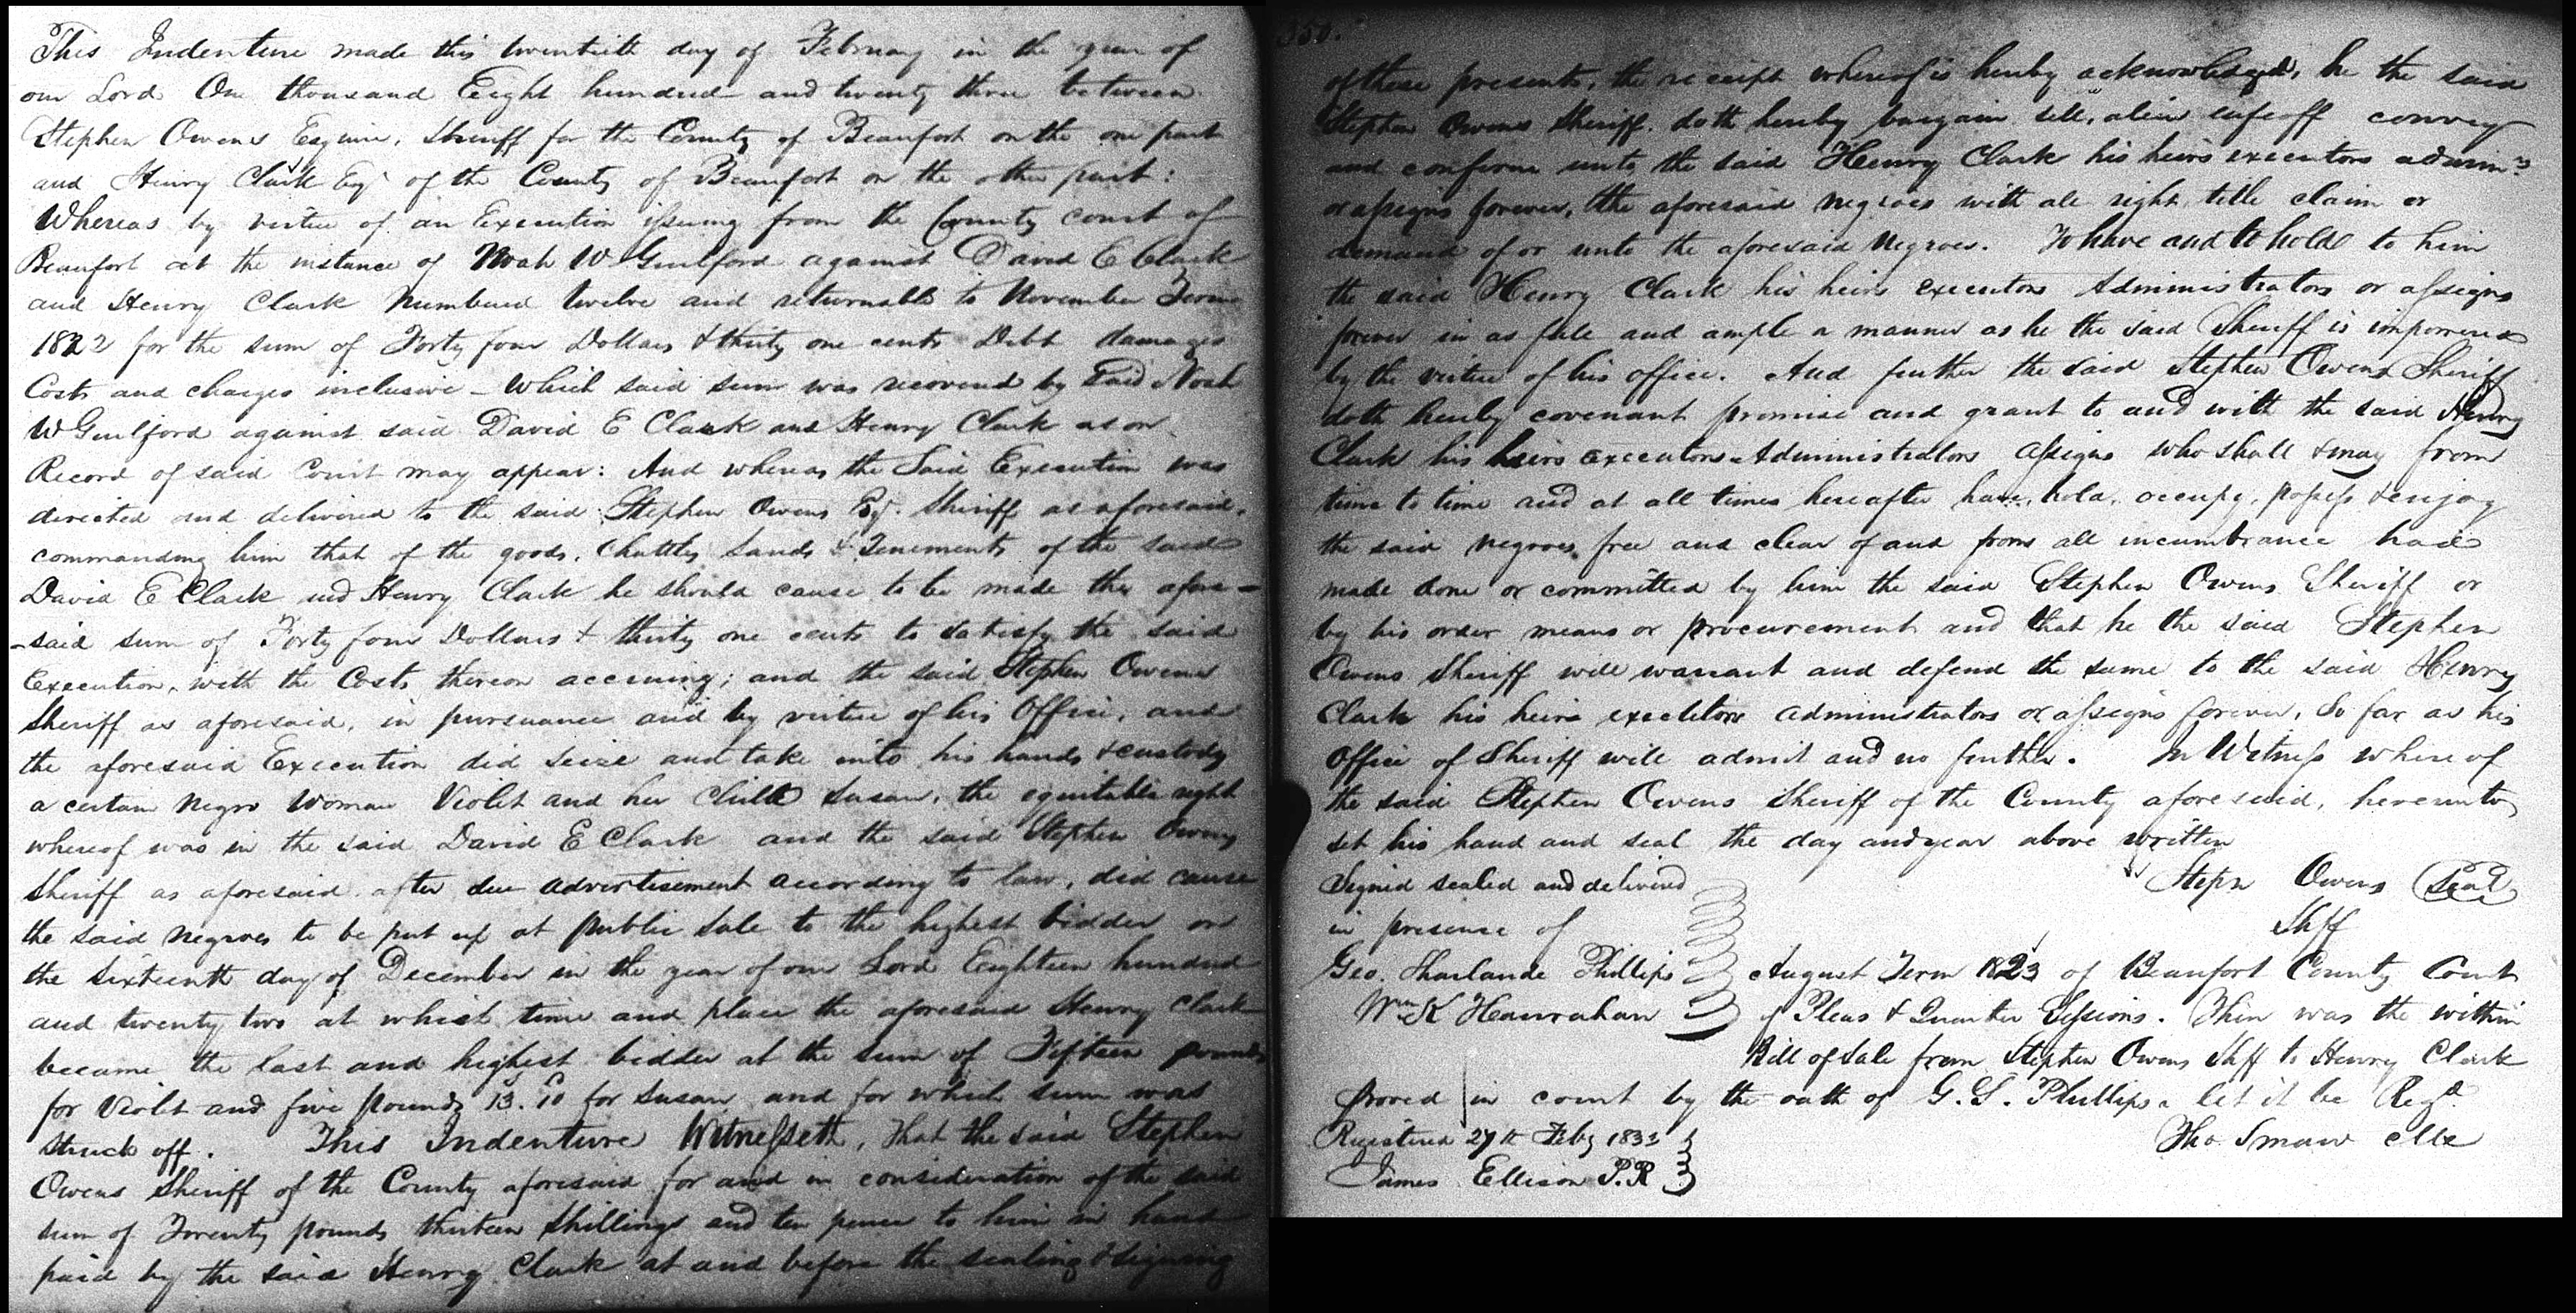 This Indenture made this twentieth day of February in the year of
our Lord One thousand Eight hundred and twenty three between
Stephen Owens Esquire, Sheriff for the County of Beaufort on the one part
and Henry Clark Esqr of the County of Beaufort on the other part:
Whereas by virtue of an Execution issuing from the County court of
Beaufort at the instance of Noah W Guilford against David E Clark
and Henry Clark Numbered twelve and returnable to November Term
1822 for the sum of Forty four Dollars & thirty one cents Debt damages
Costs and charges inclusive - Which said sum was recovered by said Noah
W Guilford against said David E Clark and Henry Clark as on
Record of said Court may appear: And whereas the Said Execution was
directed and delivered to the said Stephen Owens Esqr. Sheriff as aforesaid,
commanding him that of the goods, Chattles Lands & Tenements of the said
David E Clark and Henry Clark he should cause to be made the afore-
-said sum of Forty four Dollars & thirty one cents to satisfy the said
Execution, with the Costs thereon accruing; and the said Stephen Owens
Sheriff as aforesaid, in pursuance and by virtue of his Office, and
the aforesaid Execution did seize and take into his hands & custody
a certain Negro Woman Violet and her Child Susan, the equitable right
whereof was in the said David E Clark and the said Stephen Owens
Sheriff as aforesaid after due advertisement according to law, did cause
the said negroes to be put up at public sale to the highest bidder on
the sixteenth day of December in the year of our Lord Eighteen hundred
and twenty two at which time and place the aforesaid Henry Clark
became the last and highest bidder at the sum of Fifteen pounds
for Violet and five pounds 13. 10 for Susan and for which sum was
struck off. This Indenture Witnesseth, That the said Stephen
Owens Sheriff of the County aforesaid for and in consideration of the said
sum of Twenty pounds thirteen shillings and ten pence to him in hand
paid by the said Henry Clark at and before the sealing & signing
350.
of these presents, the receipt whereof is hereby acknowledged, he the said
Stephen Owens Sheriff. doth hereby bargain sell, alien enfeoff convey
and confirm unto the said Henry Clark his heirs executors admin.rs
or assigns forever, the aforesaid negroes with all right title claim or
demand of or unto the aforesaid Negroes. To have and to hold to him
the said Henry Clark his heirs executors Administrators or assigns
forever in as full and ample a manner as he the said Sheriff is impowered
by the virtue of his office. And further the said Stephen Owens Sheriff
doth hereby covenant promise and grant to and with the said Henry
Clark his heirs executors Administrators assigns who shall & may from
time to time and at all times hereafter have, hold, occupy, possess & enjoy
the said negroes free and clear of and from all incumbrance had
made done or committed by him the said Stephen Owens Sheriff or
by his order means or procurement and that he the said Stephen
Owens Sheriff will warrant and defend the same to the said Henry
Clark his heirs executors administrators or assigns forever, So far as his
Office of Sheriff will admit and no further. In Witness where of
the said Stephen Owens Sheriff of the County aforesaid, hereunto
set his hand and seal the day and year above written
Signed sealed and delivered Stepn Owens Seal
in presence of Shff
Geo. Sharlande Phillips August Term 1823 of Beaufort County Court
Wm K Hanrahan of Pleas & Quarter Sessions. Then was the within
Bill of Sale from Stephen Owens Shff to Henry Clark
proved in court by the oath of G. S. Phillips. let it be Regd
Registered 27th Feby 1832 Tho Smaw Clk
James Ellison P.R